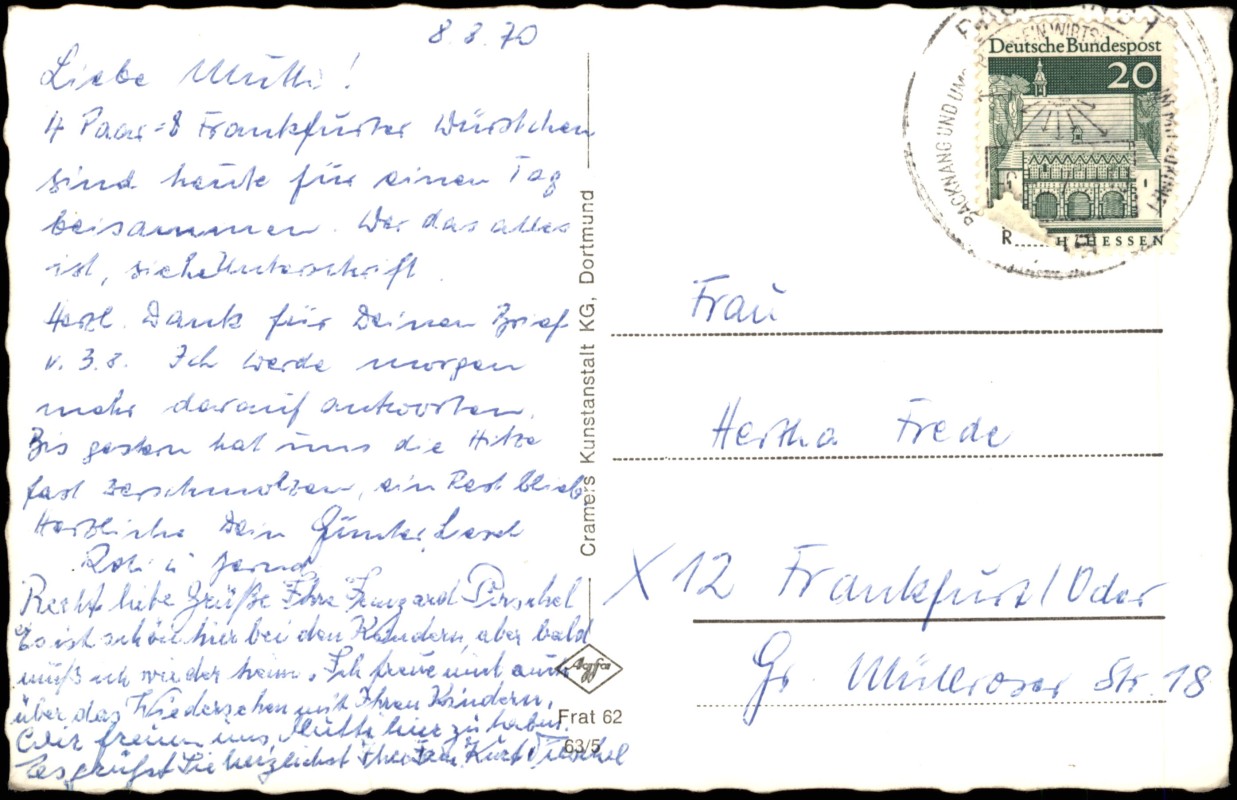 8.8.70
Liebe Mutti!
4 Paar = 8 Frankfurter Würstchen
sind heute für einen Tag
beisammen. Wer das alles
ist, siehe Unterschrift.
Herzl. Dank für Deinen Brief
v. 3.8. Ich werde morgen
mehr darauf antworten.
Bis gestern hat uns die Hitze
fast zerschmolzen, ein Rest blieb
Herzlichst Dein Günter,
u.
Recht liebe Grüße Ihre
Es ist schön hier bei den Kindern, aber bald
muß ich wieder heim. Ich freue mich auch
über das Wiedersehen mit Ihren Kindern.
Wir freuen uns, Mutti hier zu haben.
Es grüßt Sie herzlichst Kurt
Cramers Kunstanstalt KG, Dortmund
Agfa
Frat 62
63/5
BACKNANG UND UM
EIN WIRTS
Deutsche Bundespost
20
R
HESSEN
Frau
Hertha Frede
X 12 Frankfurt/Oder
Gr. Müllroser Str. 18